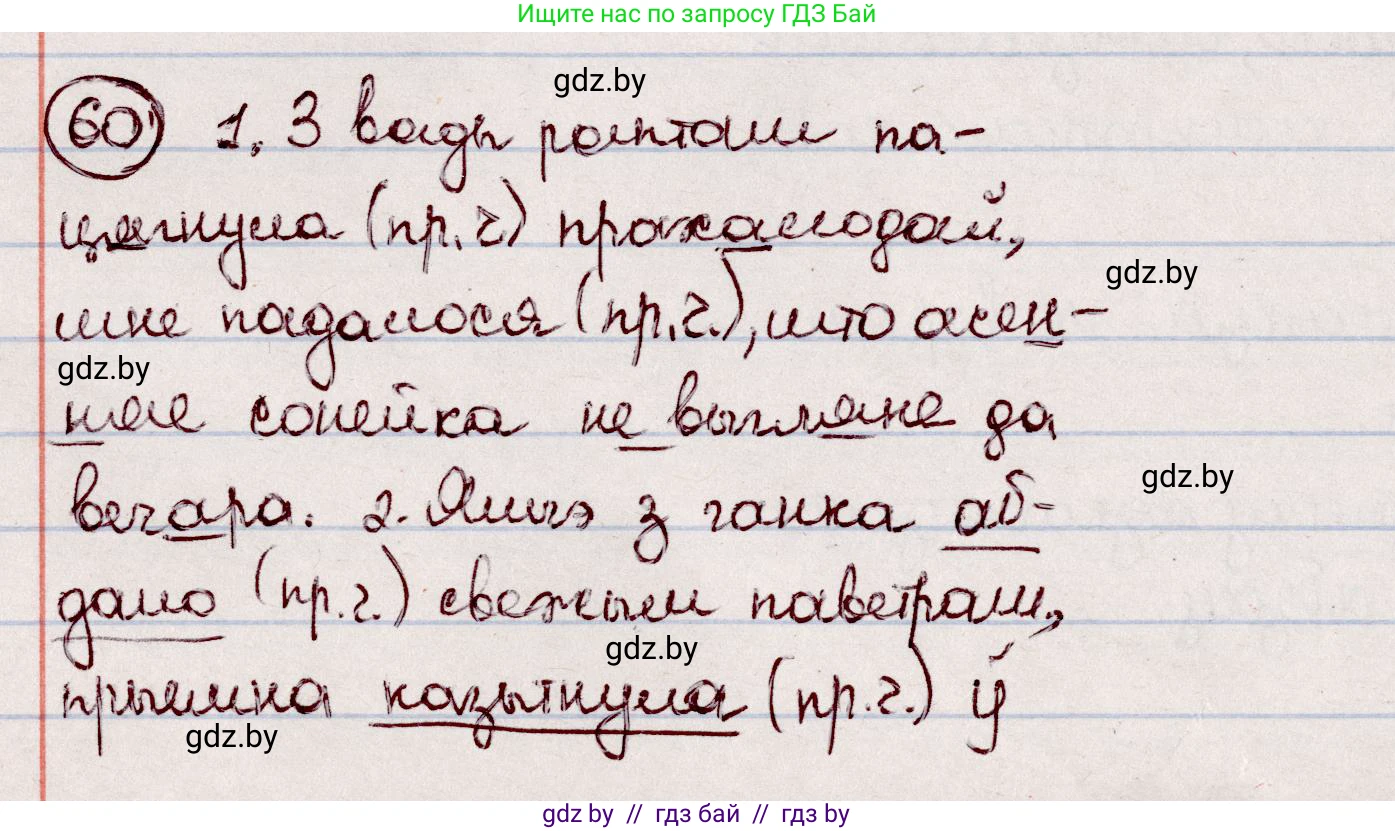 Ищите нас по запросу ГДЗ Бай
gdz.by
60 1. З вады раптам па-
цягнула (пр.ч) прахалодай,
gdz.by
мне падалося (пр.ч.), што асен-
gdz.by
няе сонейка не выгляне да
gdz.by
вечара. 2. Яшчэ з ганка аб-
дало (пр.ч.) свежым паветрам,
gdz.by
прыемна казытнула (пр.ч.) ў
gdz.by
gdz.by // гдз бай // гдз by